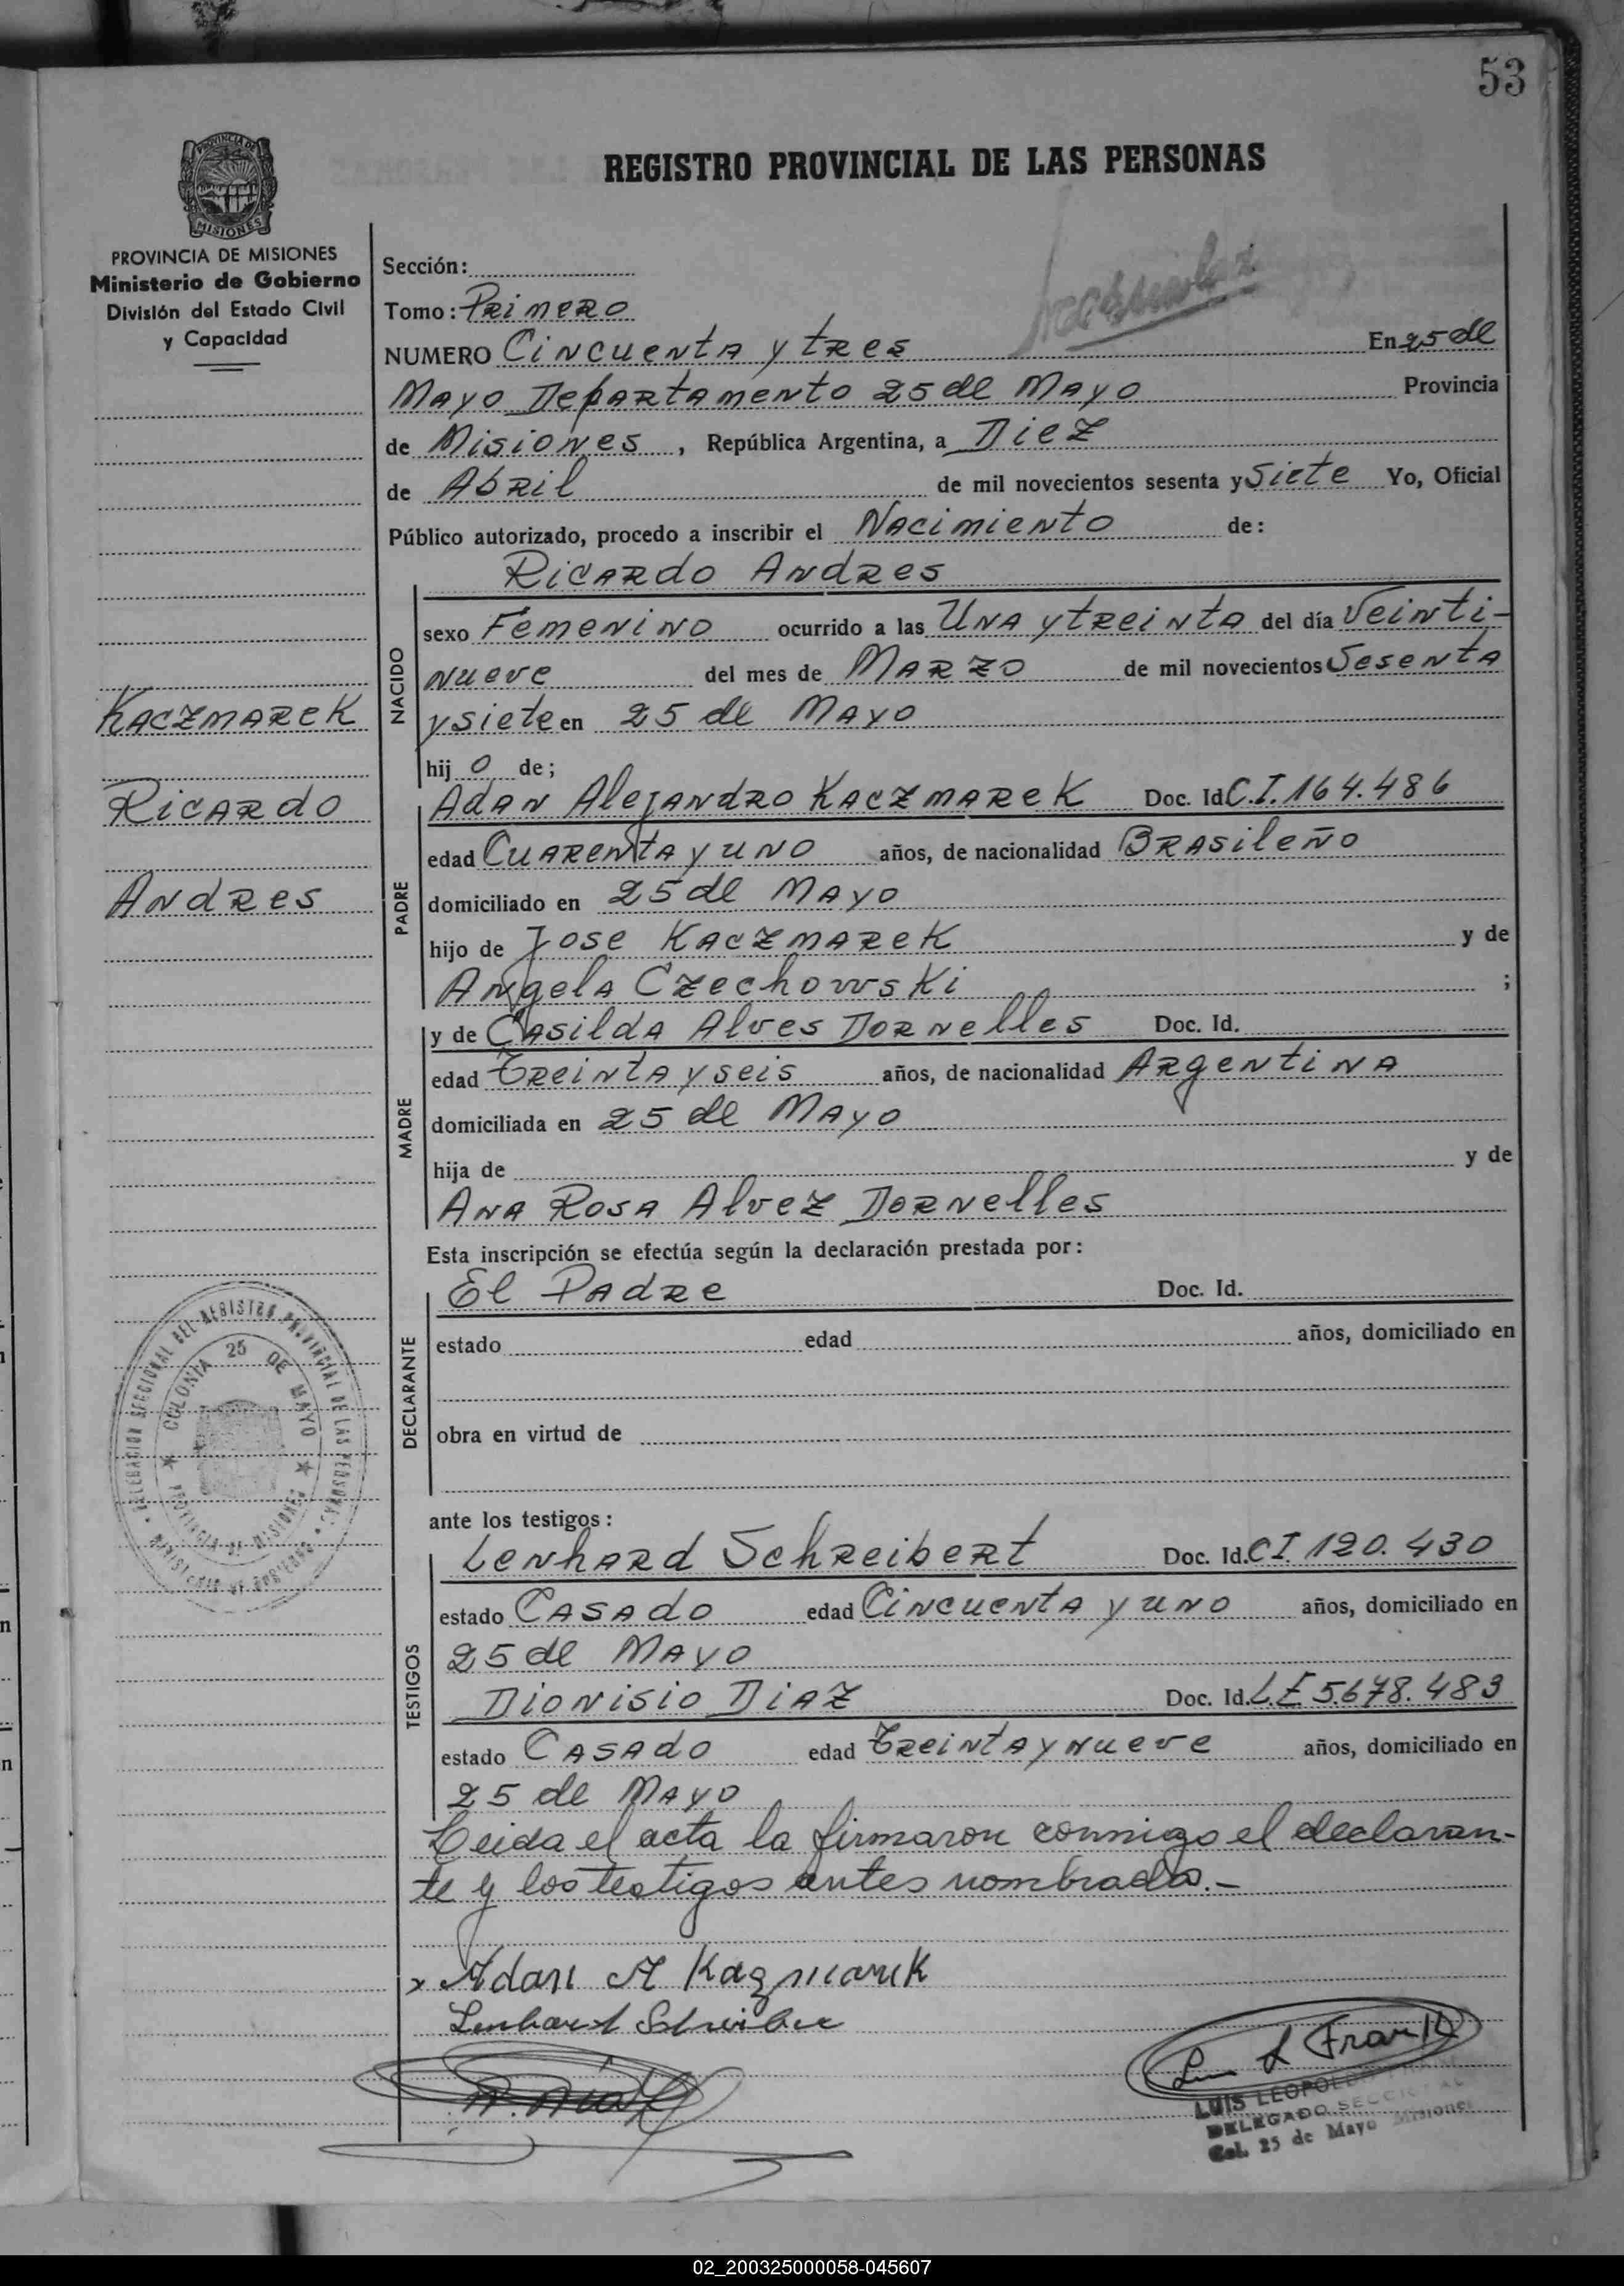 53
REGISTRO PROVINCIAL DE LAS PERSONAS
PROVINCIA DE MISIONES
MISIONES
PROVINCIA DE MISIONES
Ministerio de Gobierno
División del Estado Civil
y Capacidad
Sección:
Tomo: Primero
NUMERO Cincuenta y tres En 25 de
Mayo Departamento 25 de Mayo Provincia
de Misiones, República Argentina, a Diez
de Abril de mil novecientos sesenta y Siete Yo, Oficial
Público autorizado, procedo a inscribir el Nacimiento de:
Ricardo Andres
NACIDO
sexo Femenino ocurrido a las Una y treinta del día Veinti-
nueve del mes de Marzo de mil novecientos Sesenta
y siete en 25 de Mayo
hij o de;
Kaczmarek
Ricardo
Andres
PADRE
Adan Alejandro Kaczmarek Doc. Id C.I. 164.486
edad Cuarenta y uno años, de nacionalidad Brasileño
domiciliado en 25 de Mayo
hijo de Jose Kaczmarek y de
Angela Czechowski ;
MADRE
y de Casilda Alves Dornelles Doc. Id.
edad Treinta y seis años, de nacionalidad Argentina
domiciliada en 25 de Mayo
hija de y de
Ana Rosa Alvez Dornelles
Esta inscripción se efectúa según la declaración prestada por:
DECLARANTE
El Padre Doc. Id.
estado edad años, domiciliado en
obra en virtud de
DELEGACION SECCIONAL DEL REGISTRO PROVINCIAL DE LAS PERSONAS
MINISTERIO DE GOBIERNO
COLONIA 25 DE MAYO
PROVINCIA DE MISIONES
ante los testigos:
TESTIGOS
Lenhard Schreibert Doc. Id. CI. 120.430
estado Casado edad Cincuenta y uno años, domiciliado en
25 de Mayo
Dionisio Diaz Doc. Id. L.E 5.678.483
estado Casado edad Treinta y nueve años, domiciliado en
25 de Mayo
Leida el acta la firmaron conmigo el declaran-
te y los testigos antes nombrado.-
x Adan A Kazmarek
Lenhard Schreiber
D. Diaz
Luis L Frank
LUIS LEOPOLDO
DELEGADO SECCIONAL
Col. 25 de Mayo Misiones
02_200325000058-045607